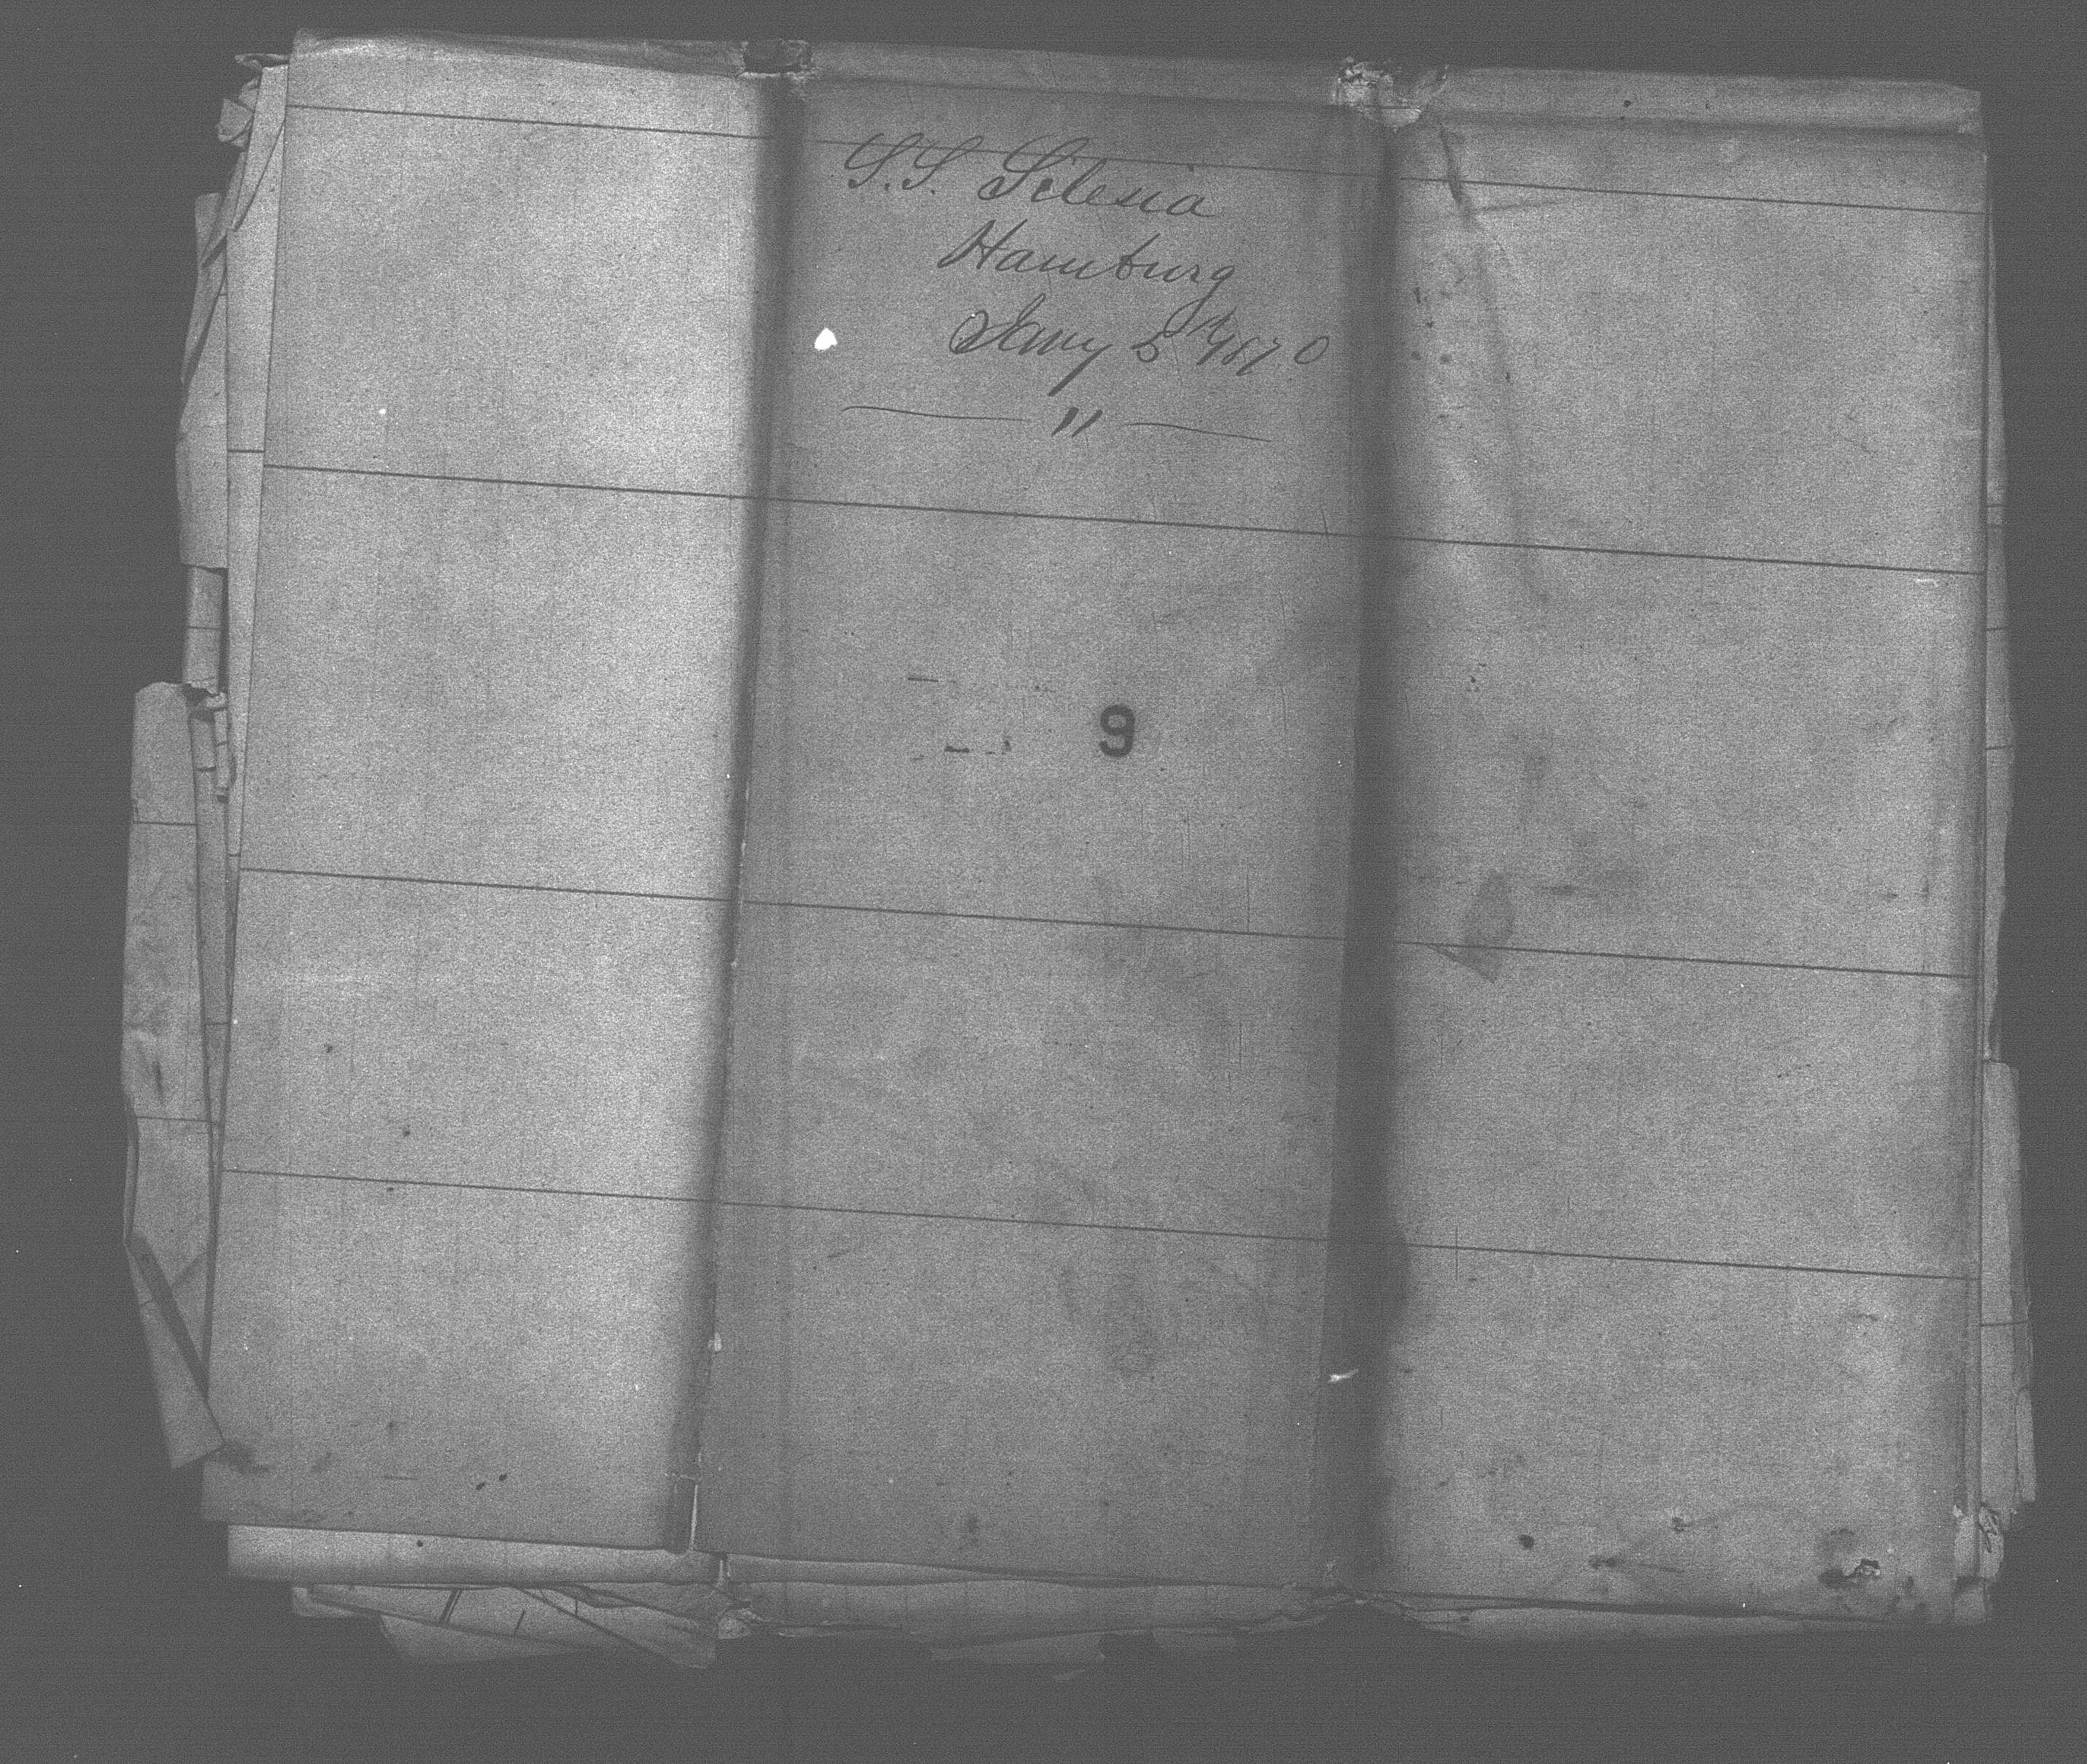 S.S. Silesia
Hamburg
Jany 5 1870
— " —
9